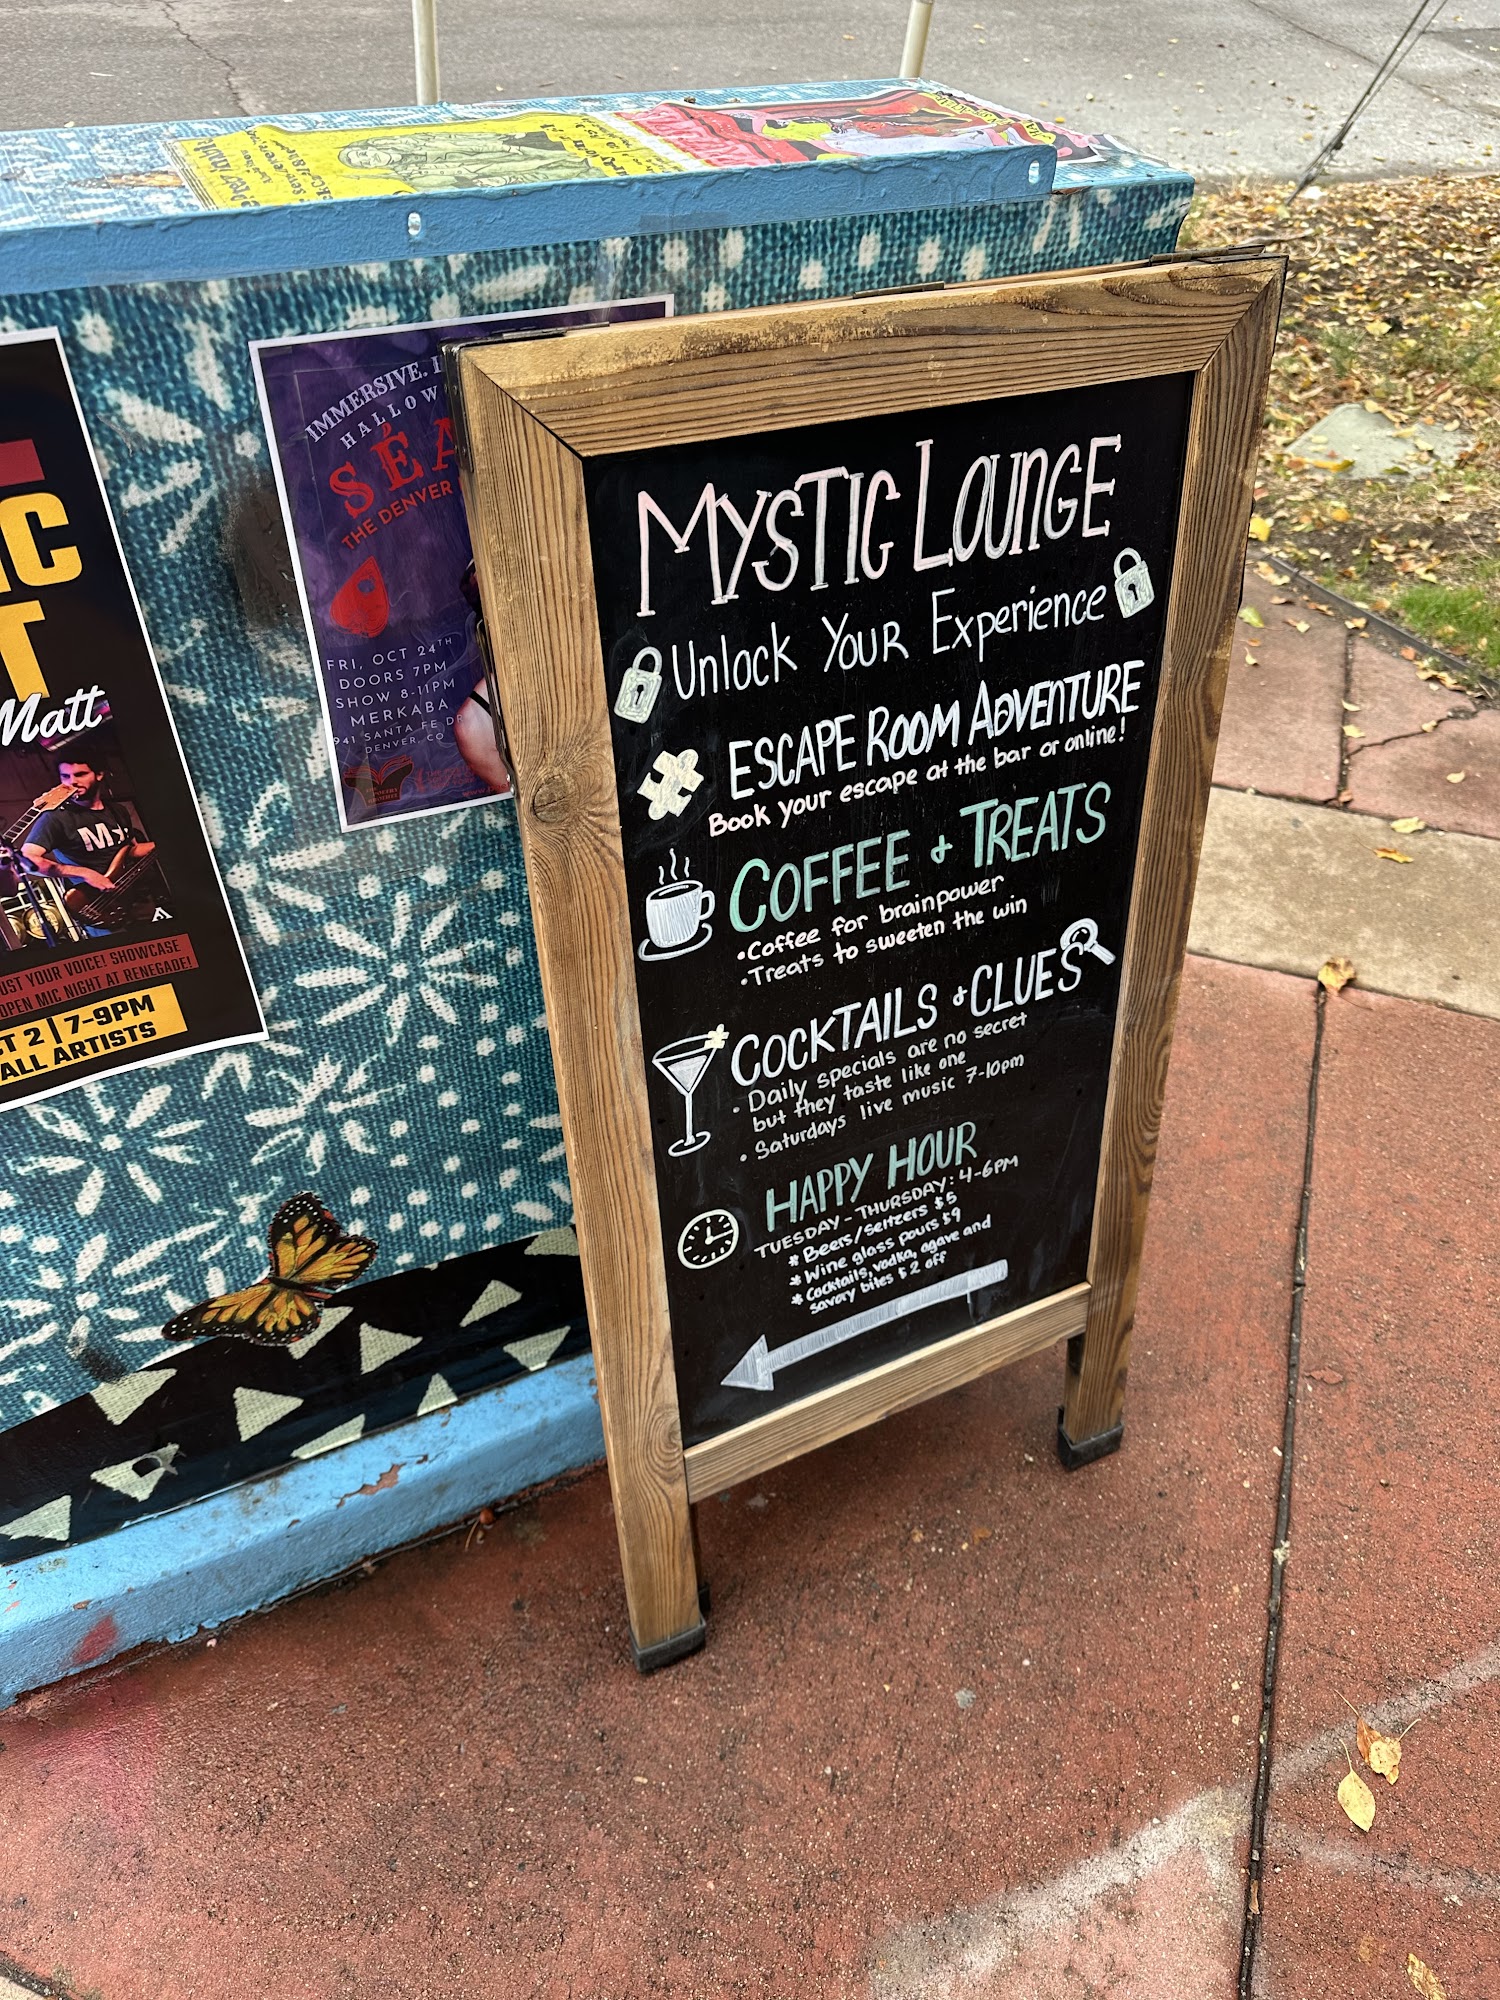 MYSTIC LOUNGE
Unlock Your Experience
ESCAPE ROOM ADVENTURE
Book your escape at the bar or online!
COFFEE & TREATS
• Coffee for brainpower
• Treats to sweeten the win
COCKTAILS & CLUES
• Daily specials are no secret
but they taste like one
• Saturdays live music 7-10pm
HAPPY HOUR
TUESDAY - THURSDAY: 4-6PM
* Beers/Seltzers $5
* Wine glass pours $9
* Cocktails, vodka, agave and
savory bites $2 off
IMMERSIVE.
HALLOW
SÉA
THE DENVER
FRI, OCT 24TH
DOORS 7PM
SHOW 8-11PM
MERKABA
941 SANTA FE DR
DENVER, CO
IC
T
Matt
M
UST YOUR VOICE! SHOWCASE
OPEN MIC NIGHT AT RENEGADE!
CT 2 | 7-9PM
ALL ARTISTS